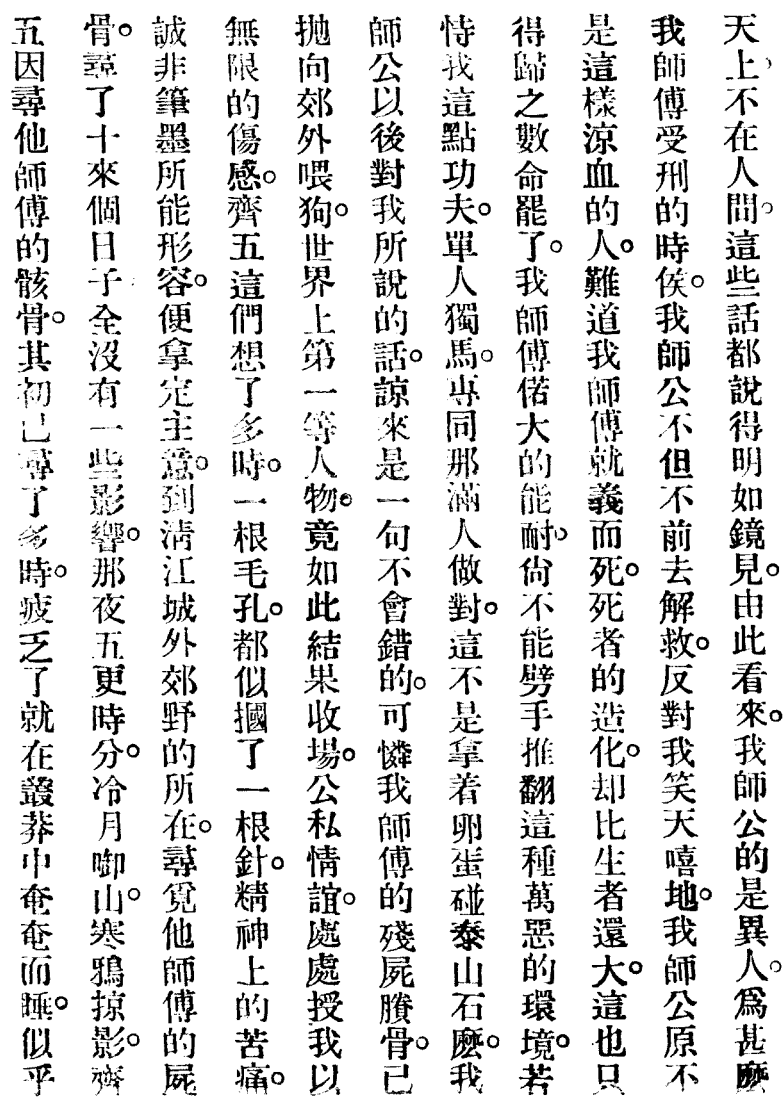 天上。不在人間。這些話都說得明如鏡見。由此看來。我師公的是異人。爲甚麼
我師傅受刑的時侯。我師公不但不前去解救。反對我笑天嘻地。我師公原不
是這樣涼血的人。難道我師傅就義而死。死者的造化。却比生者還大。這也只
得歸之數命罷了。我師傅偌大的能耐。尙不能劈手推翻這種萬惡的環境。若
恃我這點功夫。單人獨馬。專同那滿人做對。這不是拿着卵蛋碰泰山石麼。我
師公以後對我所說的話。諒來是一句不會錯的。可憐我師傅的殘屍賸骨。已
拋向郊外喂狗。世界上第一等人物。竟如此結果收場。公私情誼。處處授我以
無限的傷感。齊五這們想了多時。一根毛孔。都似摑了一根針。精神上的苦痛。
誠非筆墨所能形容。便拿定主意。到淸江城外郊野的所在。尋覓他師傅的屍
骨。尋了十來個日子。全沒有一些影響。那夜五更時分。冷月啣山。寒鴉掠影。齊
五因尋他師傅的骸骨。其初已尋了多時。疲乏了就在叢莽中奄奄而睡。似乎